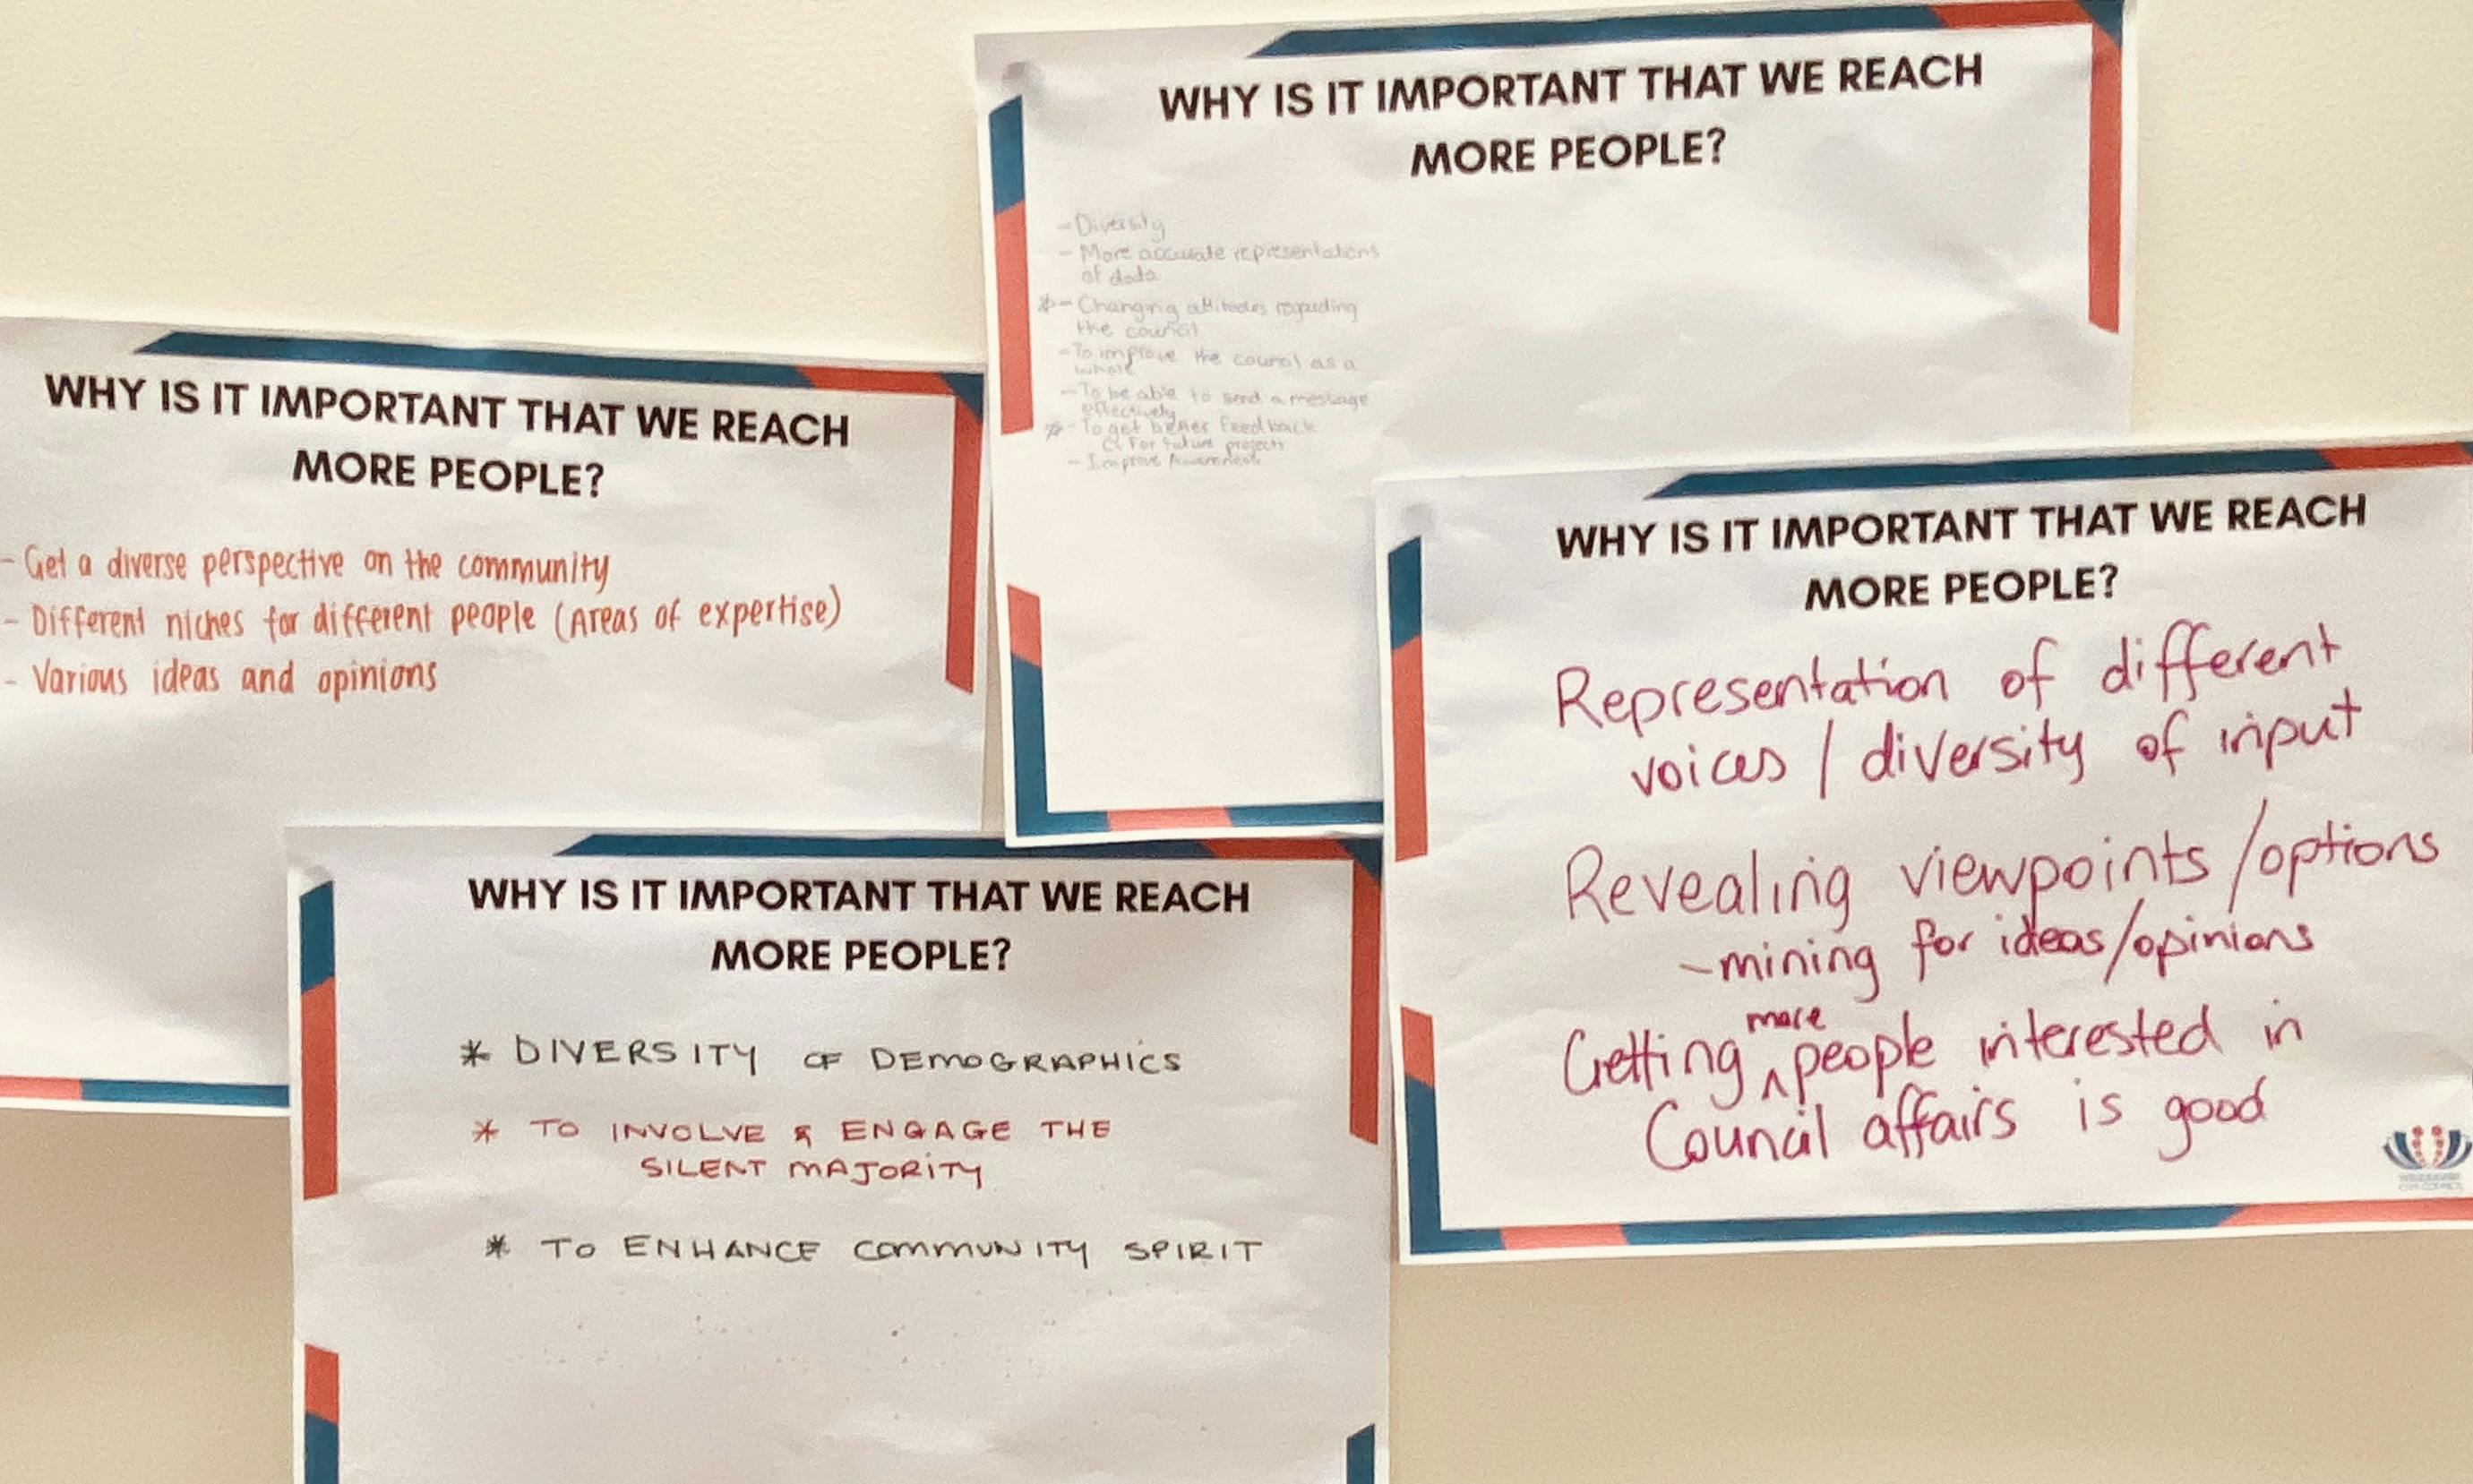 WHY IS IT IMPORTANT THAT WE REACH
MORE PEOPLE?
- Diversity
- More accurate representations
of data
* - Changing attitudes regarding
the council
- To improve the council as a
whole
- To be able to send a message
effectively
* - To get better Feedback
For future projects
- Improve Awareness
WHY IS IT IMPORTANT THAT WE REACH
MORE PEOPLE?
- Get a diverse perspective on the community
- Different niches for different people (Areas of expertise)
- Various ideas and opinions
WHY IS IT IMPORTANT THAT WE REACH
MORE PEOPLE?
Representation of different
voices / diversity of input
Revealing viewpoints / options
- mining for ideas/opinions
Getting ^ more people interested in
Council affairs is good
WHY IS IT IMPORTANT THAT WE REACH
MORE PEOPLE?
* DIVERSITY OF DEMOGRAPHICS
* TO INVOLVE & ENGAGE THE
SILENT MAJORITY
* TO ENHANCE COMMUNITY SPIRIT